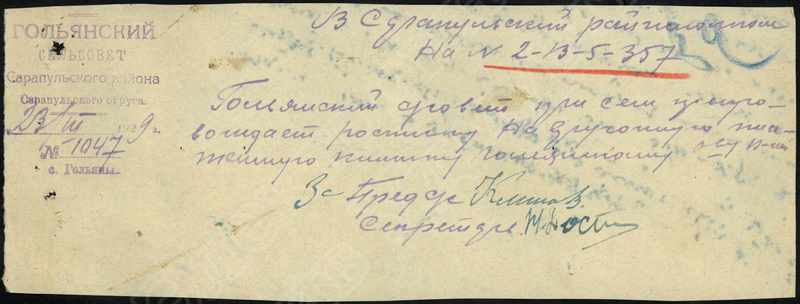 ГОЛЬЯНСКИЙ
СЕЛЬСОВЕТ
Сарапульского района
Сарапульского округа.
23/VII 1929 г.
№ 1047
с. Гольяны.
В Сарапульский райисполком
На № 2-13-5-357
Гольянский с/совет при сем препро-
вождает расписку на врученную пла-
тежную книжку гольянскому
За Предс
Секретарь